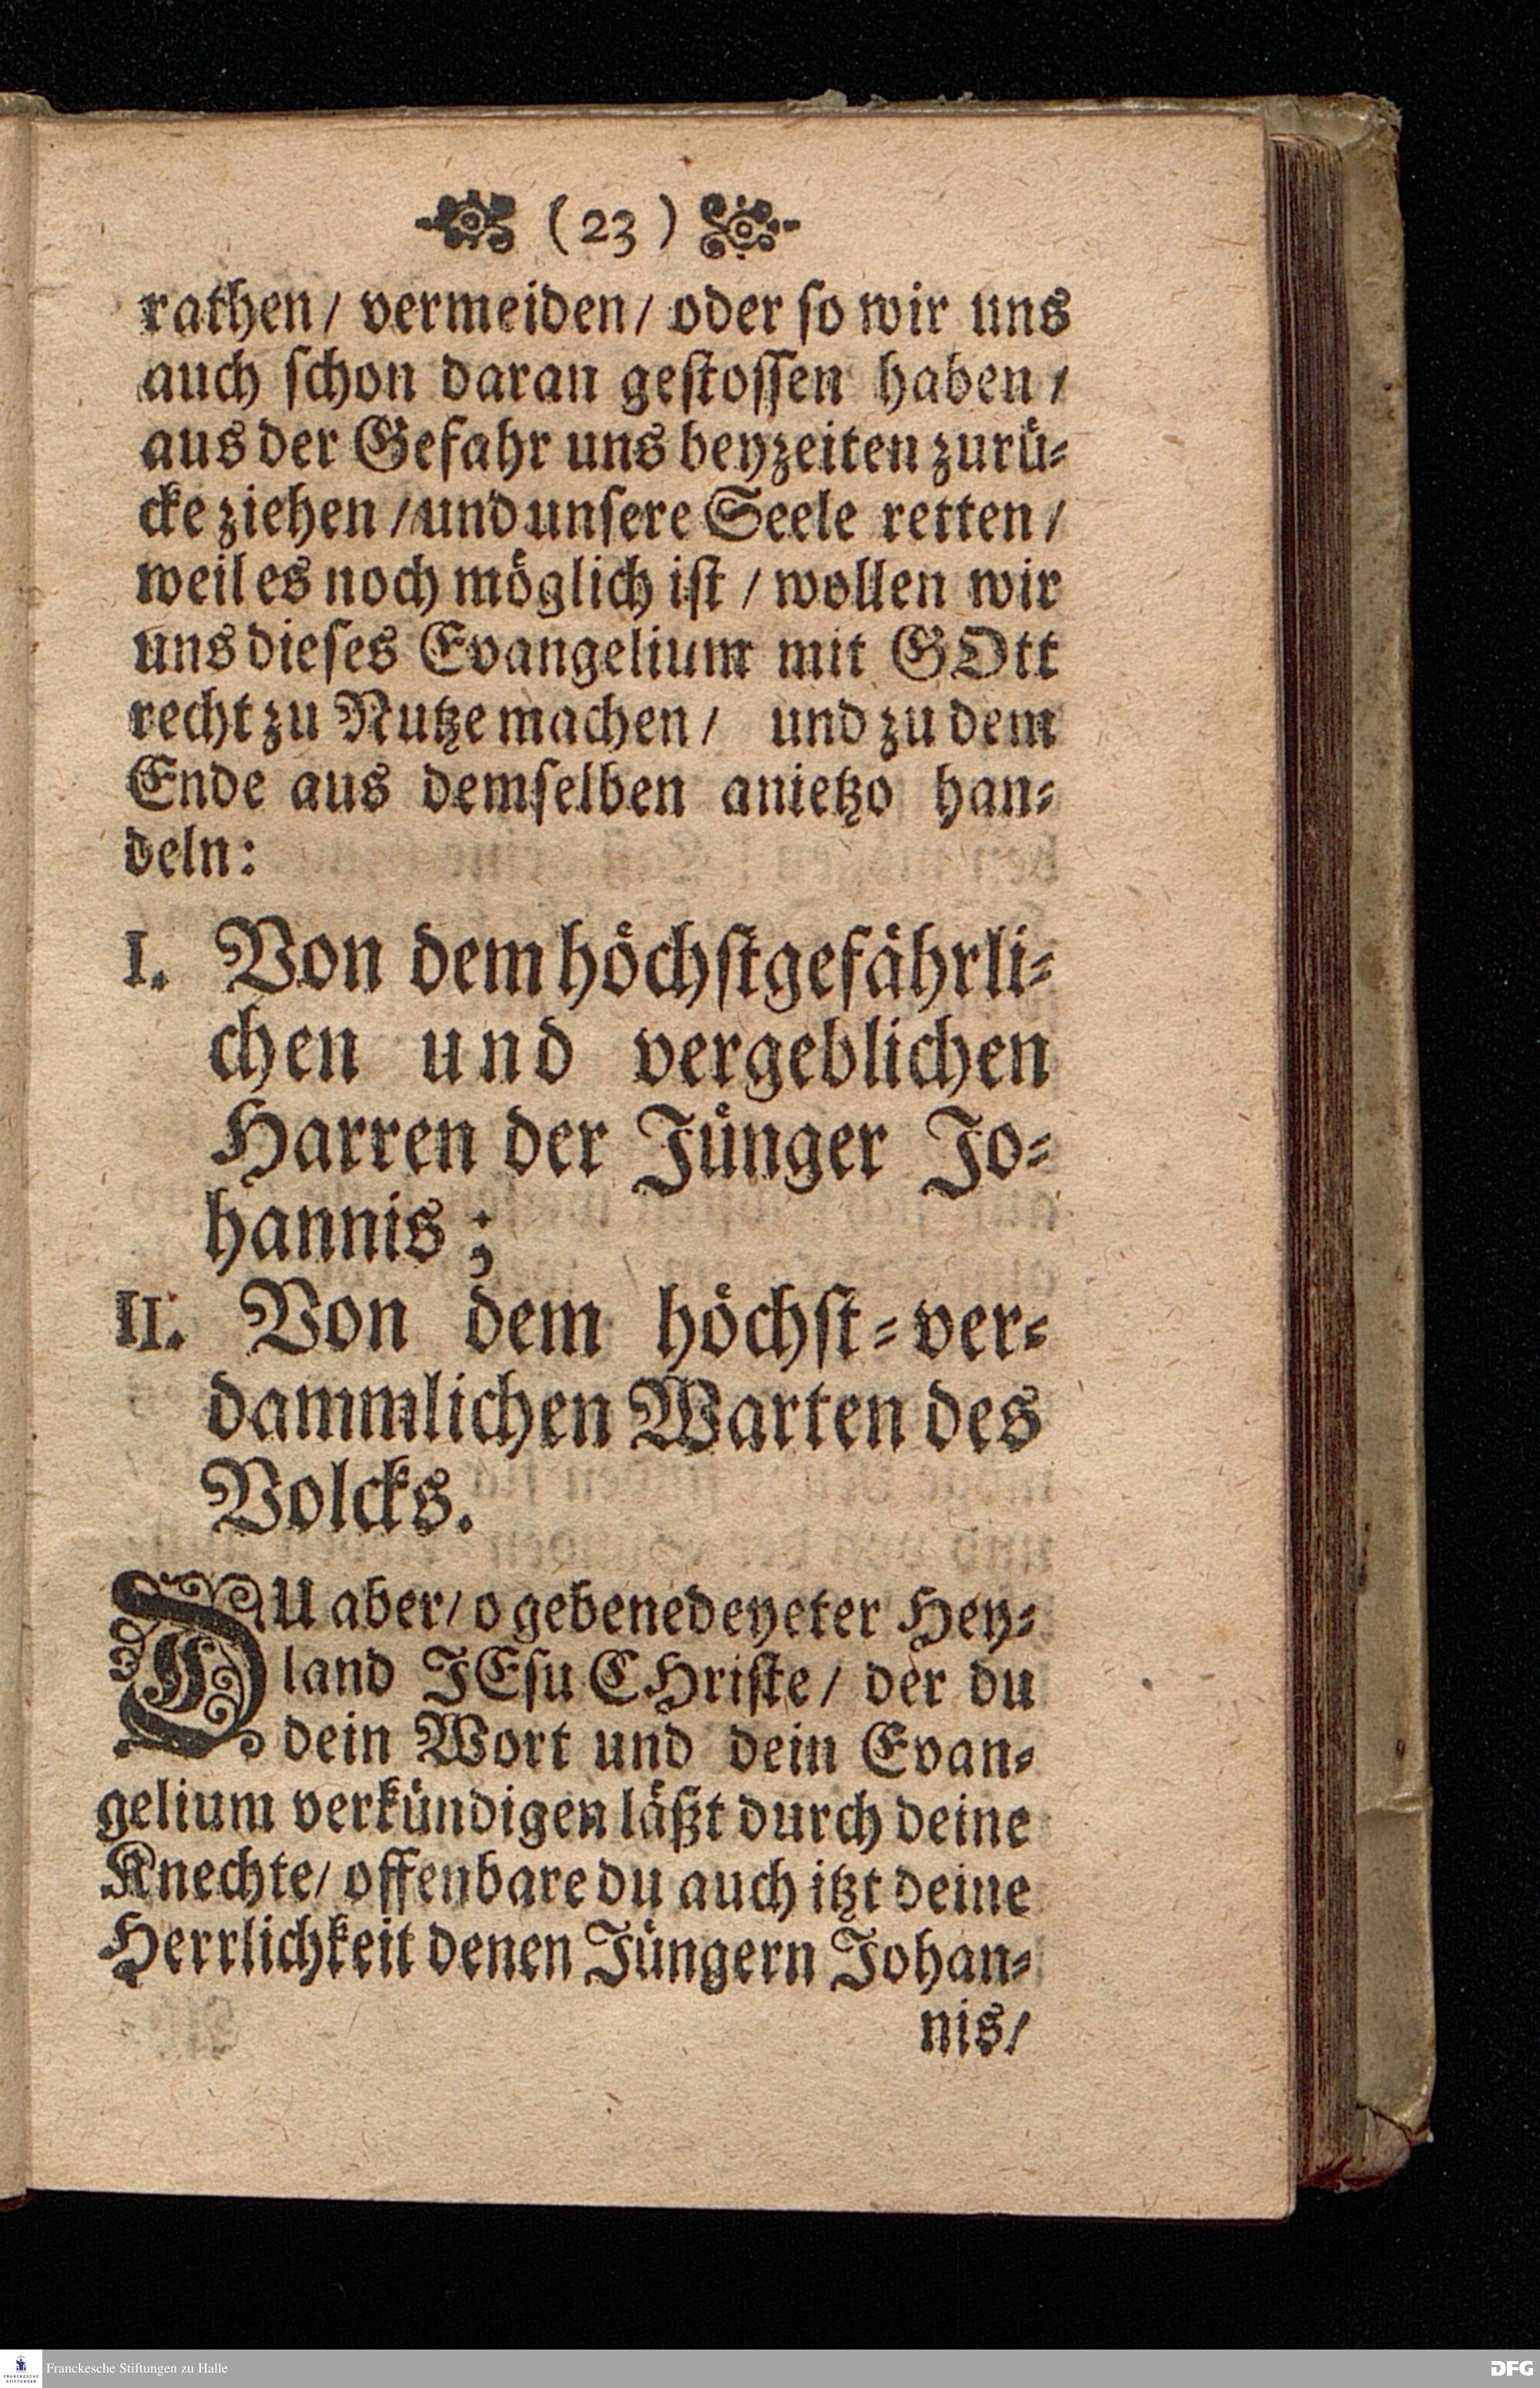 ( 23 )
rathen/ vermeiden/ oder so wir uns
auch schon daran gestossen haben /
aus der Gefahr uns beyzeiten zurü-
cke ziehen / und unsere Seele retten /
weil es noch möglich ist / wollen wir
uns dieses Evangelium mit GOtt
recht zu Nutze machen / und zu dem
Ende aus demselben anietzo han-
deln:
I. Von dem höchstgefährli-
chen und vergeblichen
Harren der Jünger Jo-
hannis ;
II. Von dem höchst-ver-
dammlichen Warten des
Volcks.
DU aber/ o gebenedeyeter Hey-
land JEsu CHriste / der du
dein Wort und dein Evan-
gelium verkündigen läßt durch deine
Knechte/ offenbare du auch itzt deine
Herrlichkeit denen Jüngern Johan-
nis/
Franckesche Stiftungen zu Halle
DFG